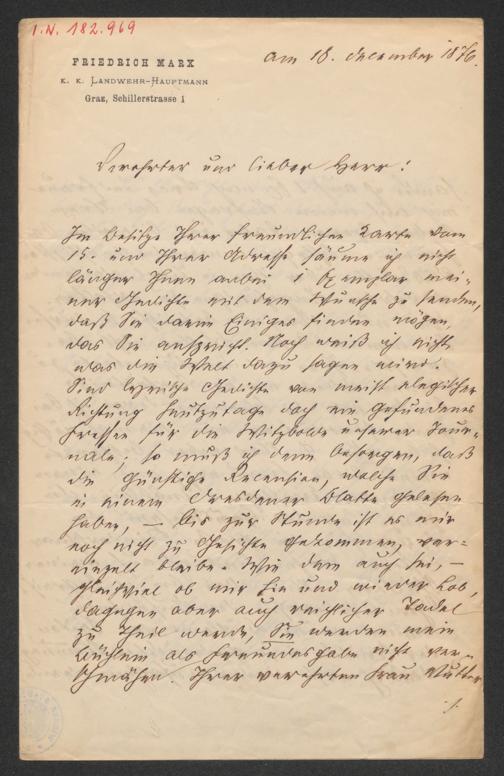 I.N. 182.969
am 18. Dezember 1876.
FRIEDRICH MARX
K. K. LANDWEHR-HAUPTMANN
Graz, Schillerstrasse 1
Verehrter und lieber Herr!
Im Besitze Ihrer freundlichen Karte vom
15. und Ihrer Adresse säume ich nicht
länger Ihnen anbei 1 Exemplar mei-
ner Gedichte mit dem Wunsche zu senden,
daß Sie darin Einiges finden mögen,
das Sie anspricht. Noch weiß ich nicht,
was die Welt dazu sagen wird.
Sind lyrische Gedichte von meist elegischer
Richtung heutzutage doch ein gefundenes
Fressen für die Witzbolde unserer Jour-
nale; so muß ich denn besorgen, daß
die günstige Recension, welche Sie
in einem Dresdener Blatte gelesen
haben, – bis zur Stunde ist es mir
noch nicht zu Gesichte gekommen, ver-
einzelt bleibe. Wie dem auch sei, –
gleichviel ob mir hie und wieder Lob,
dagegen aber auch reichlicher Tadel
zu Theil werde, Sie werden mein
Büchlein als Freundesgabe nicht ver-
schmähen. Ihrer verehrten Frau Mutter
./.